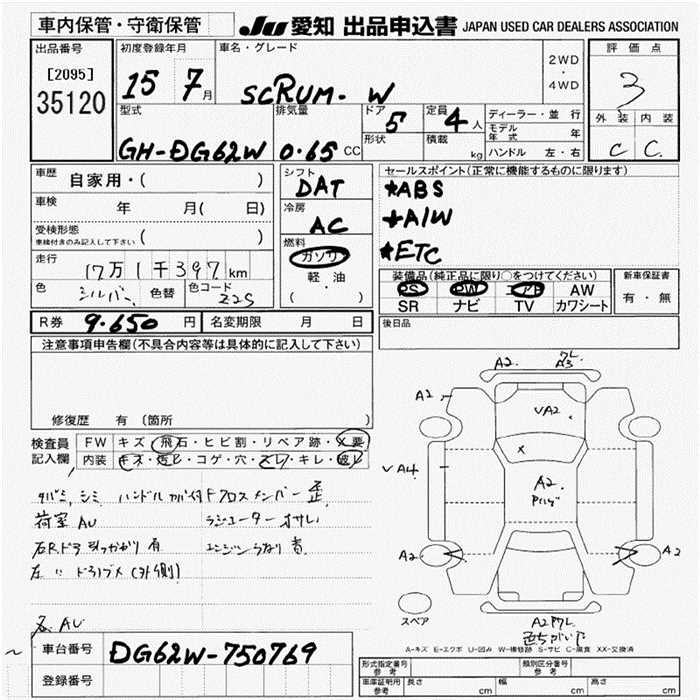 車内保管・守衛保管
JU 愛知 出品申込書 JAPAN USED CAR DEALERS ASSOCIATION
出品番号
[2095]
35120
初度登録年月
15 7月
車名・グレード
SCRUM. W
2WD
・
4WD
評価点
3
外装 内装
C C.
型式
GH-DG62W
排気量
0.65 CC
ドア
5
形状
定員
4人
積載
kg
ディーラー・並行
モデル年式 年
ハンドル 左・右
車歴 自家用・( )
車検 年 月( 日)
受検形態
車検付きのみ記入して下さい ( )
走行
17万1千397km
色 シルバー 色替 色コード Z2S
シフト
DAT
冷房
AC
燃料
ガソリン
軽・油
( ・ )
セールスポイント(正常に機能するものに限ります)
★ABS
★A/W
★ETC
装備品(純正品に限り○をつけてください)
PS PW エアB AW
SR ナビ TV カワシート
新車保証書
有・無
R券 9.650 円 名変期限 月 日
後日品
注意事項申告欄(不具合内容等は具体的に記入して下さい)
修復歴 有 (箇所 )
検査員
記入欄
FW キズ・飛石・ヒビ割・リペア跡・X要
内装 キズ・汚レ・コゲ・穴・スレ・キレ・破レ
タバミ、シミ ハンドルカバー付 Fクロスメンバー歪
荷室AU ラジエーター
右Rドア 引っかかり有 エンジンうなり有
左 〃 ドア内ブメ(外側)
各AU
A2. フレ A3
A2
VA2
X
VA4
A2.
Pハゲ
A2
A2
A2フレ
色ちがい
スペア
A-キズ E-エクボ U-凹み W-補修跡 S-サビ C-腐食 XX-交換済
車台番号 DG62W-750769
登録番号
形式指定番号
参考
類別区分番号
参考
車庫証明用
参考
長さ cm
幅 cm
高さ cm